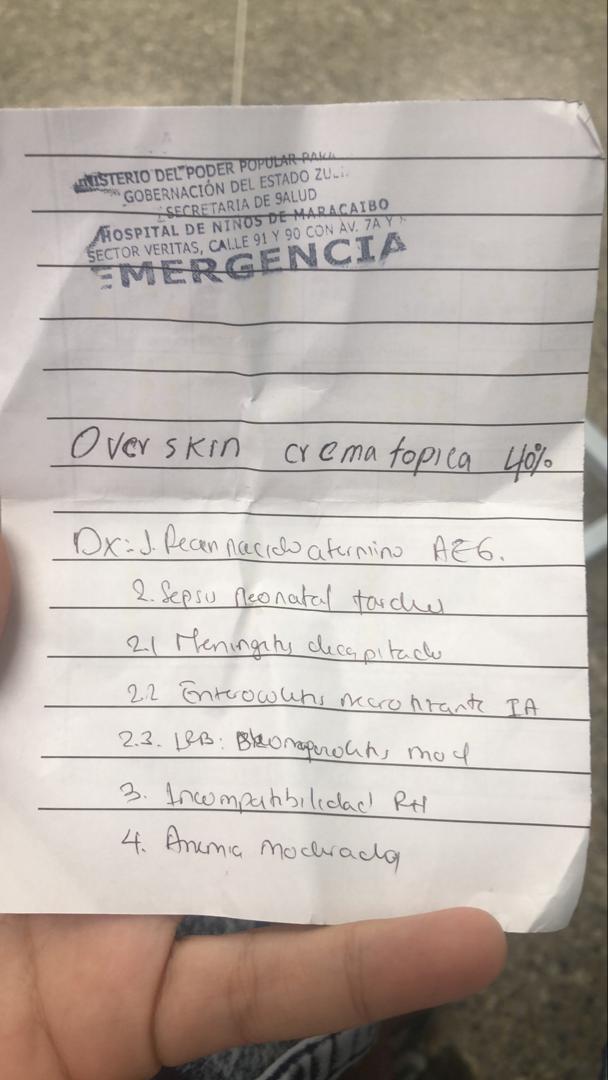 MINISTERIO DEL PODER POPULAR PARA
GOBERNACIÓN DEL ESTADO ZU
SECRETARIA DE SALUD
HOSPITAL DE NIÑOS DE MARACAIBO
SECTOR VERITAS, CALLE 91 Y 90 CON AV. 7A Y
EMERGENCIA
Over skin crema topica 40%
Dx: 1. Recien nacido a termino AEG.
2. Sepsis neonatal tardia
2.1 Meningitis decapitada
2.2 Enterocolitis necrotizante IA
2.3. IRB:
3. Incompatibilidad RH
4. Anemia moderada